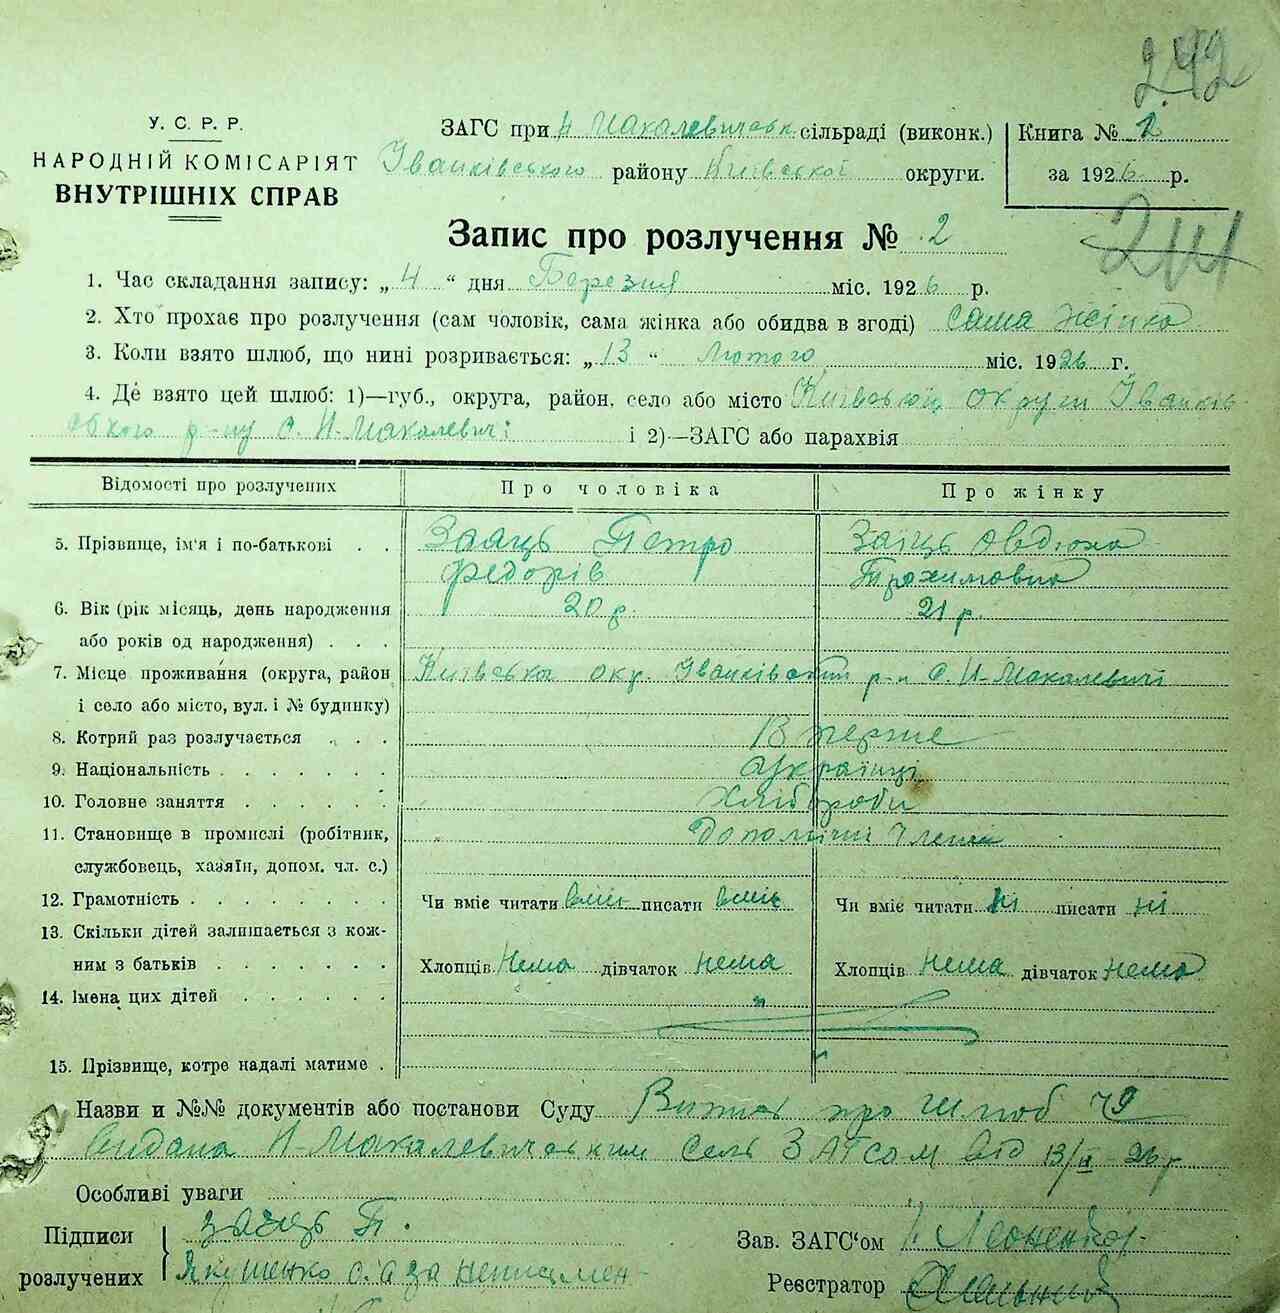 242
У. С. Р. Р.
НАРОДНІЙ КОМІСАРІЯТ
ВНУТРІШНІХ СПРАВ
ЗАГС при Н Макалевичськ. сільраді (виконк.)
Іванківського району Київської округи.
Книга № 1
за 1926 р.
Запис про розлучення № 2
241
1. Час складання запису: „ 4 “ дня Березня міс. 1926 р.
2. Хто прохає про розлучення (сам чоловік, сама жінка або обидва в згоді) Сама жінка
3. Коли взято шлюб, що нині розривається: „ 13 “ Лютого міс. 1926 г.
4. Де взято цей шлюб: 1)—губ., округа, район, село або місто Київської округи Іванків-
ського р-ну С. Н-Макалевичі і 2)—ЗАГС або парахвія
Відомості про розлучених Про чоловіка Про жінку
5. Прізвище, ім'я і по-батькові . . Заяць Петро Заїць Овдюха
Федорів Трохимовна
6. Вік (рік місяць, день народження 20 р. 21 р.
або років од народження) . . .
7. Місце проживання (округа, район Київська окр. Іванківський р-н С. Н-Макалевичі
і село або місто, вул. і № будинку)
8. Котрий раз розлучається . . . В перше
9. Національність . . . . . . . Українці
10. Головне заняття . . . . . . Хлібороби
11. Становище в промислі (робітник, Допомічні члени
службовець, хазяїн, допом. чл. с.)
12. Грамотність . . . . . . . . Чи вміє читати вміє писати вміє Чи вміє читати ні писати ні
13. Скільки дітей залишається з кож-
ним з батьків . . . . . . . Хлопців Нема дівчаток нема Хлопців нема дівчаток нема
14. Імена цих дітей . . . . . . "
15. Прізвище, котре надалі матиме .
Назви и №№ документів або постанови Суду Витяг про шлюб 79
Видана Н-Макалевичським Сель ЗАГСом від 13/II-26 р
Особливі уваги
Підписи Заяць П.
розлучених Якушенко а за неписмен-
Зав. ЗАГС'ом Леоненко
Реєстратор